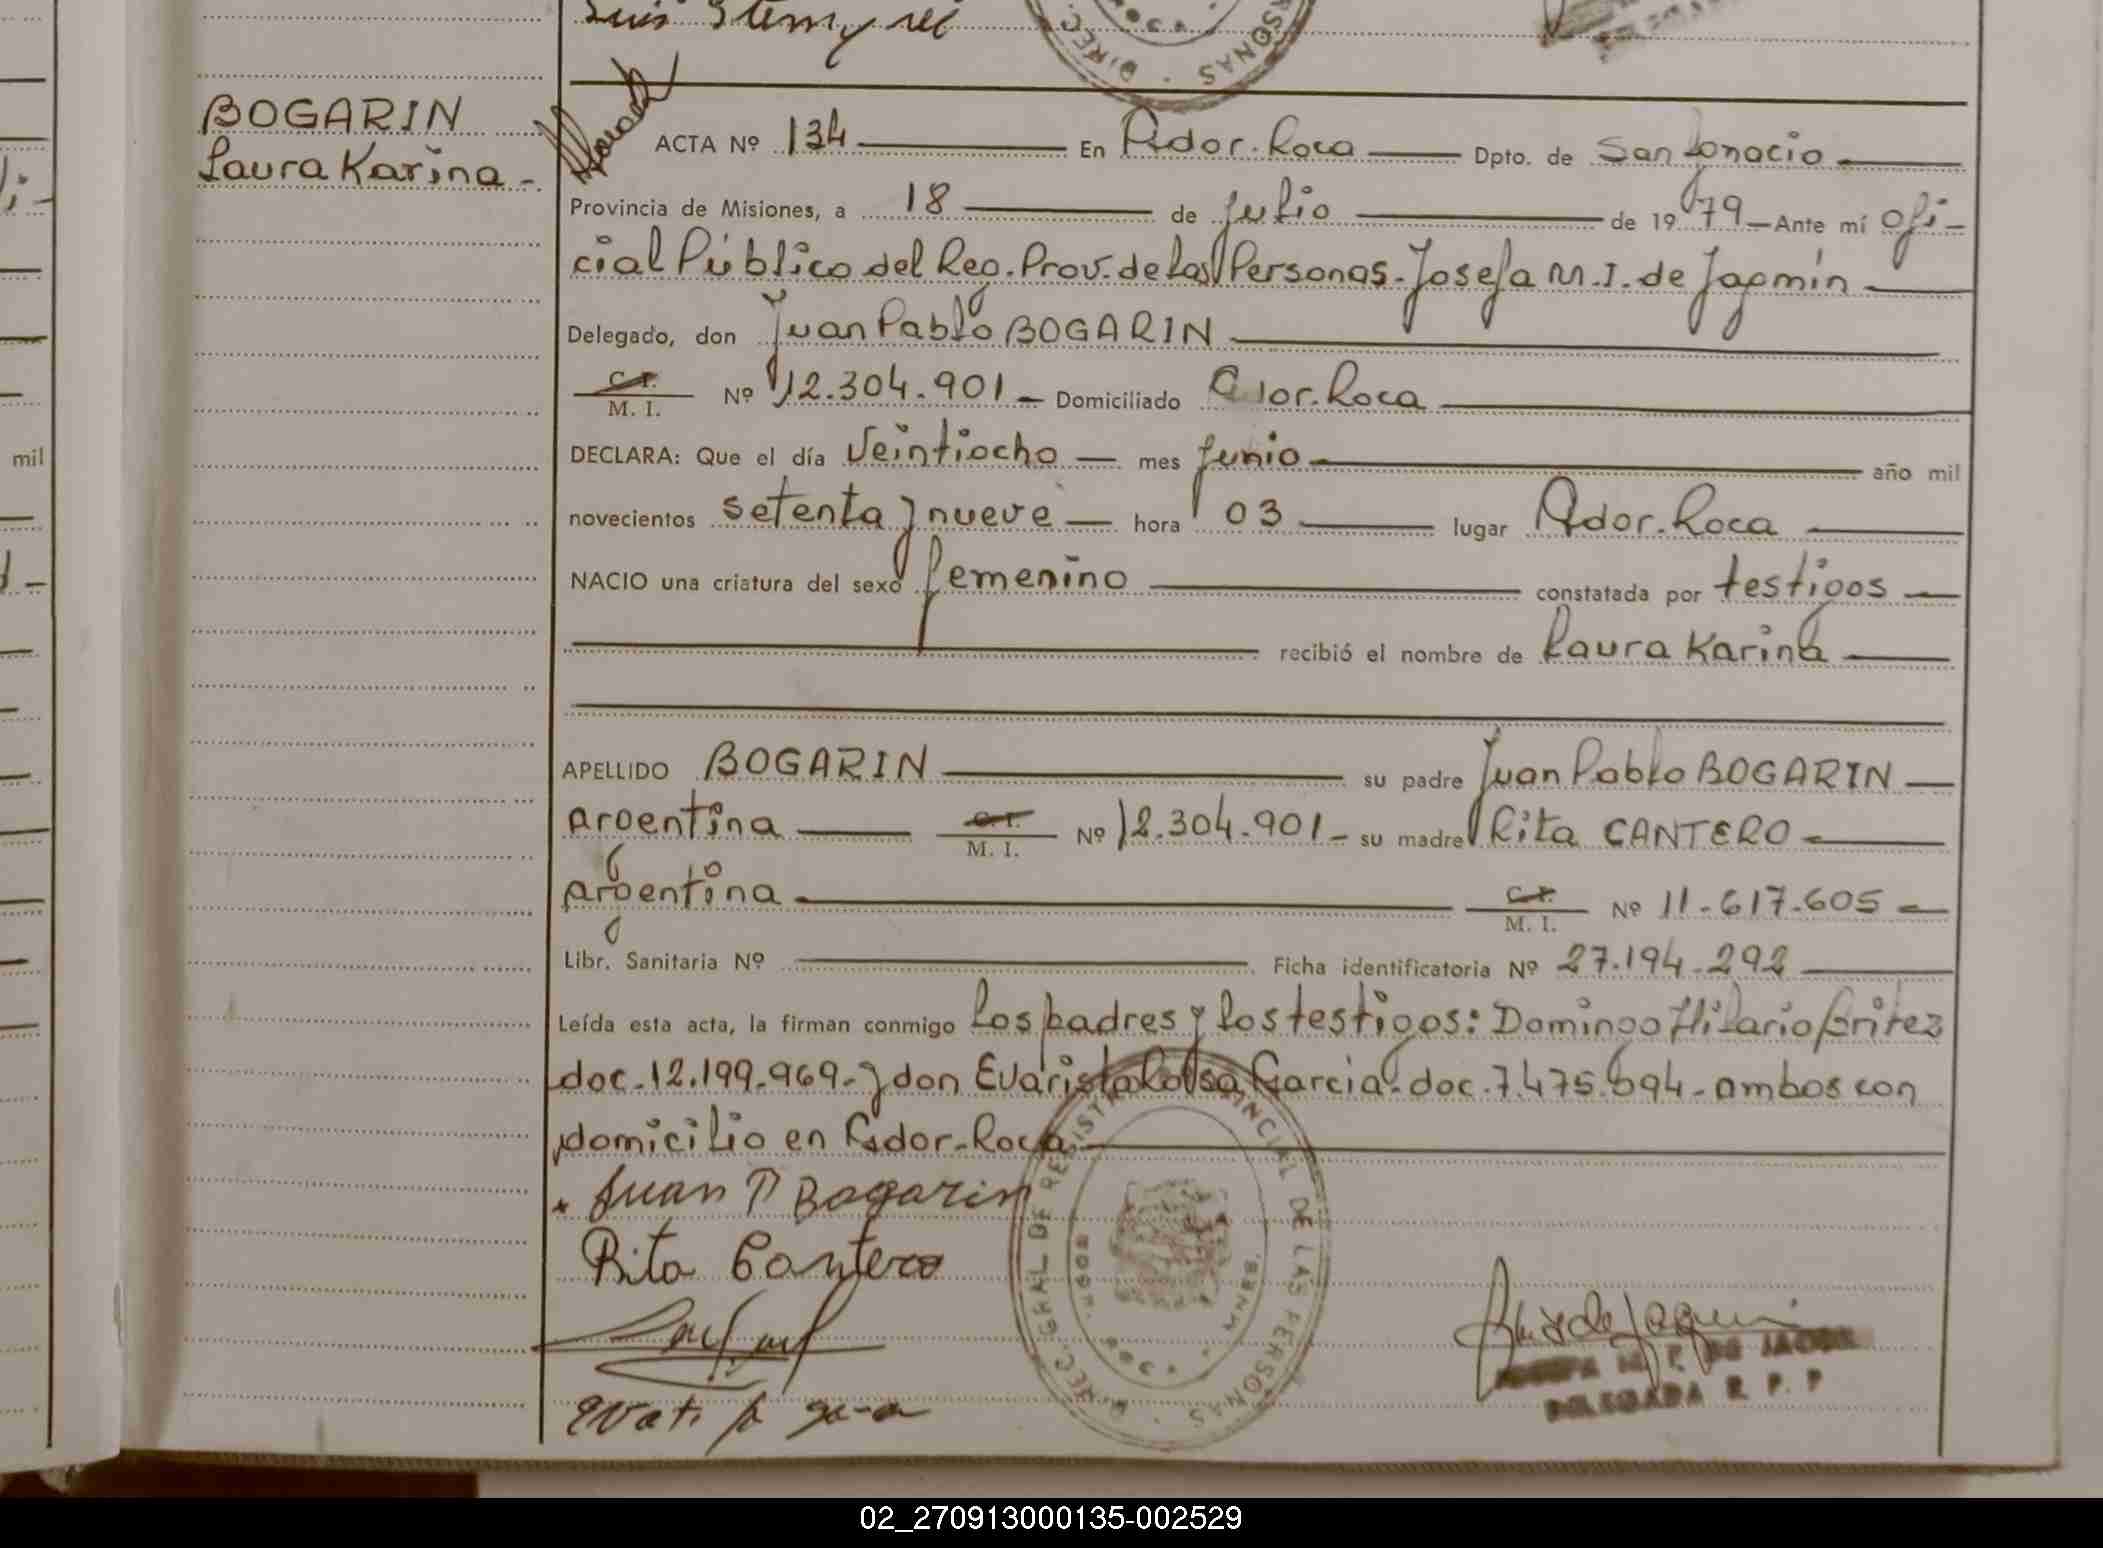 BOGARIN
Laura Karina -
ACTA Nº 134 En Gdor. Roca Dpto. de San Ignacio
Provincia de Misiones, a 18 de julio de 1979 - Ante mí ofi-
cial Público del Reg. Prov. de las Personas - Josefa M. I. de Jaqmin
Delegado, don Juan Pablo BOGARIN
C. I.
M. I. Nº 12.304.901 - Domiciliado Gdor. Roca
DECLARA: Que el día Veintiocho - mes junio año mil
novecientos setenta y nueve - hora 03 lugar Gdor. Roca
NACIO una criatura del sexo femenino constatada por testigos -
recibió el nombre de Laura Karina
APELLIDO BOGARIN su padre Juan Pablo BOGARIN -
argentina C. I. M. I. Nº 12.304.901 - su madre Rita CANTERO -
argentina C. I. M. I. Nº 11.617.605 -
Libr. Sanitaria Nº Ficha identificatoria Nº 27.194.292
Leída esta acta, la firman conmigo los padres y los testigos: Domingo Hilario Britez
doc. 12.199.969 - y don Evaristo Garcia - doc. 7.475.694 - ambos con
domicilio en Gdor. Roca
Juan P Bogarin
Rita Cantero
DIREC. GRAL DE REGISTRO PROVINCIAL DE LAS PERSONAS
DELEGADA R. P. P
mil
02_270913000135-002529